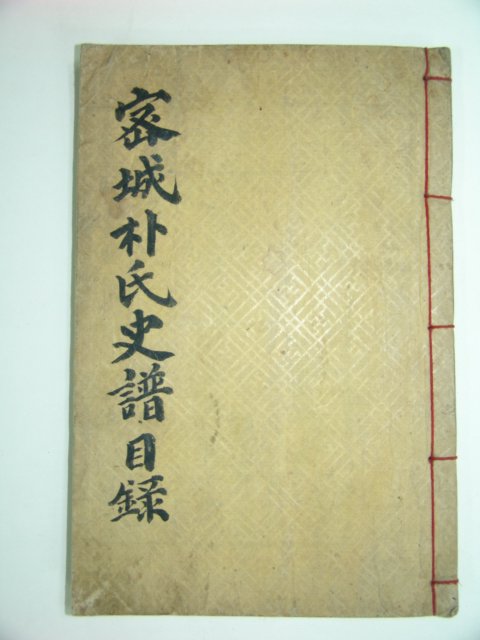 密城朴氏史譜目錄